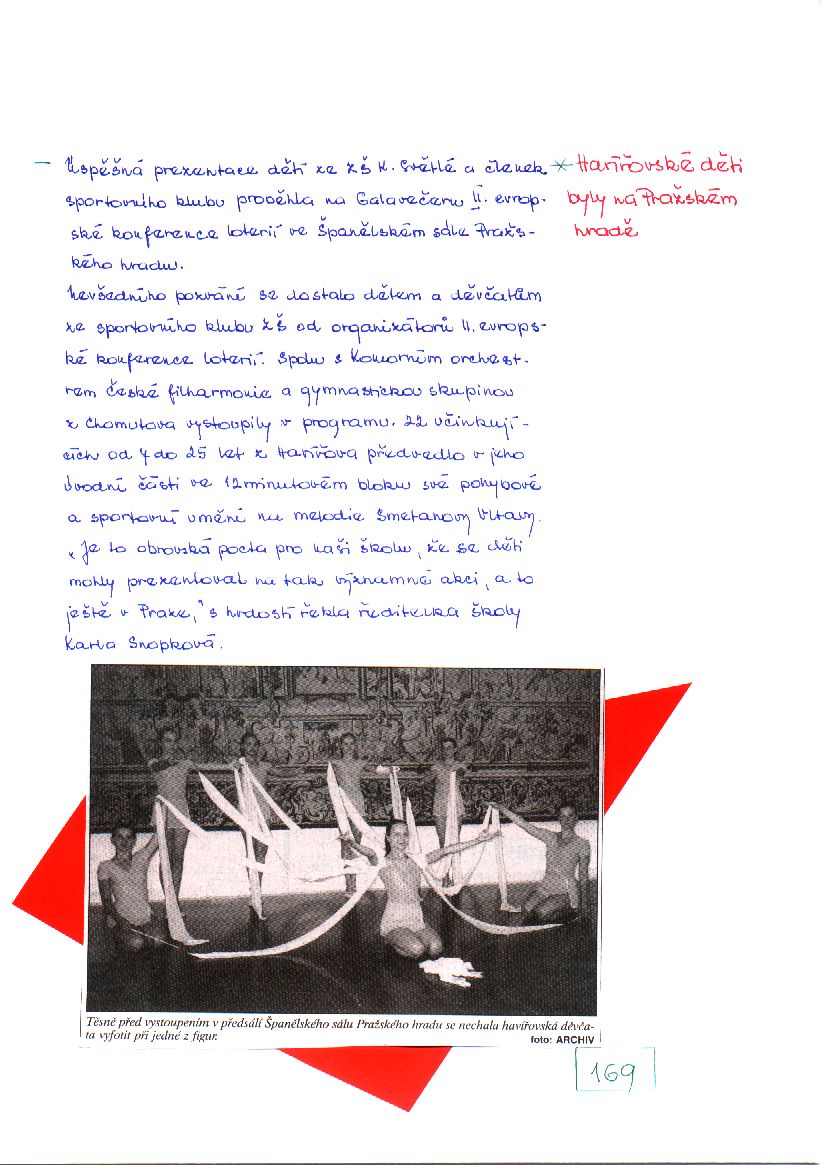 — Úspěšná prezentace dětí ze ZŠ K. Světlé a členek
sportovního klubu proběhla na Galavečeru II. evrop-
ské konference loterií ve Španělském sále Praž-
kého hradu.
* Havířovské děti
byly na Pražském
hradě
Nevšedního pozvání se dostalo dětem a děvčatům
ze sportovního klubu ZŠ od organizátorů II. evrops-
ké konference loterií. Spolu s Komorním orchest-
rem České filharmonie a gymnastickou skupinou
z Chomutova vystoupily v programu. 22 účinkují-
cích od 7 do 25 let z Havířova předvedlo v jeho
úvodní části ve 12minutovém bloku své pohybové
a sportovní umění na melodie Smetanovy Vltavy.
„Je to obrovská pocta pro naši školu, že se děti
mohly prezentovat na tak významné akci, a to
ještě v Praze," s hrdostí řekla ředitelka školy
Karla Snopková.
Těsně před vystoupením v předsálí Španělského sálu Pražského hradu se nechala havířovská děvča-
ta vyfotit při jedné z figur.
foto: ARCHIV
169